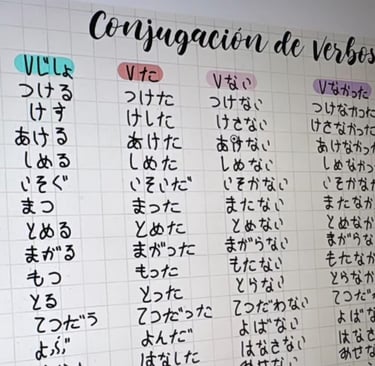 Conjugación de verbos
Vじしょ Vた Vない Vなかった
つける つけた つけない つけなかった
けす けした けさない けさなかった
あける あけた あけない あけなかっ
しめる しめた しめない しめなか
いそぐ いそいだ いそがない いそがな
まつ まった またない またなか
とめる とめた とめない とめなか
まがる まがった まがらない まがらな
もつ もった もたない もたなか
とる とった とらない とらなか
てつだう てつだった てつだわない てつだ
よぶ よんだ よばない よばな
はなした はなさない はなさ